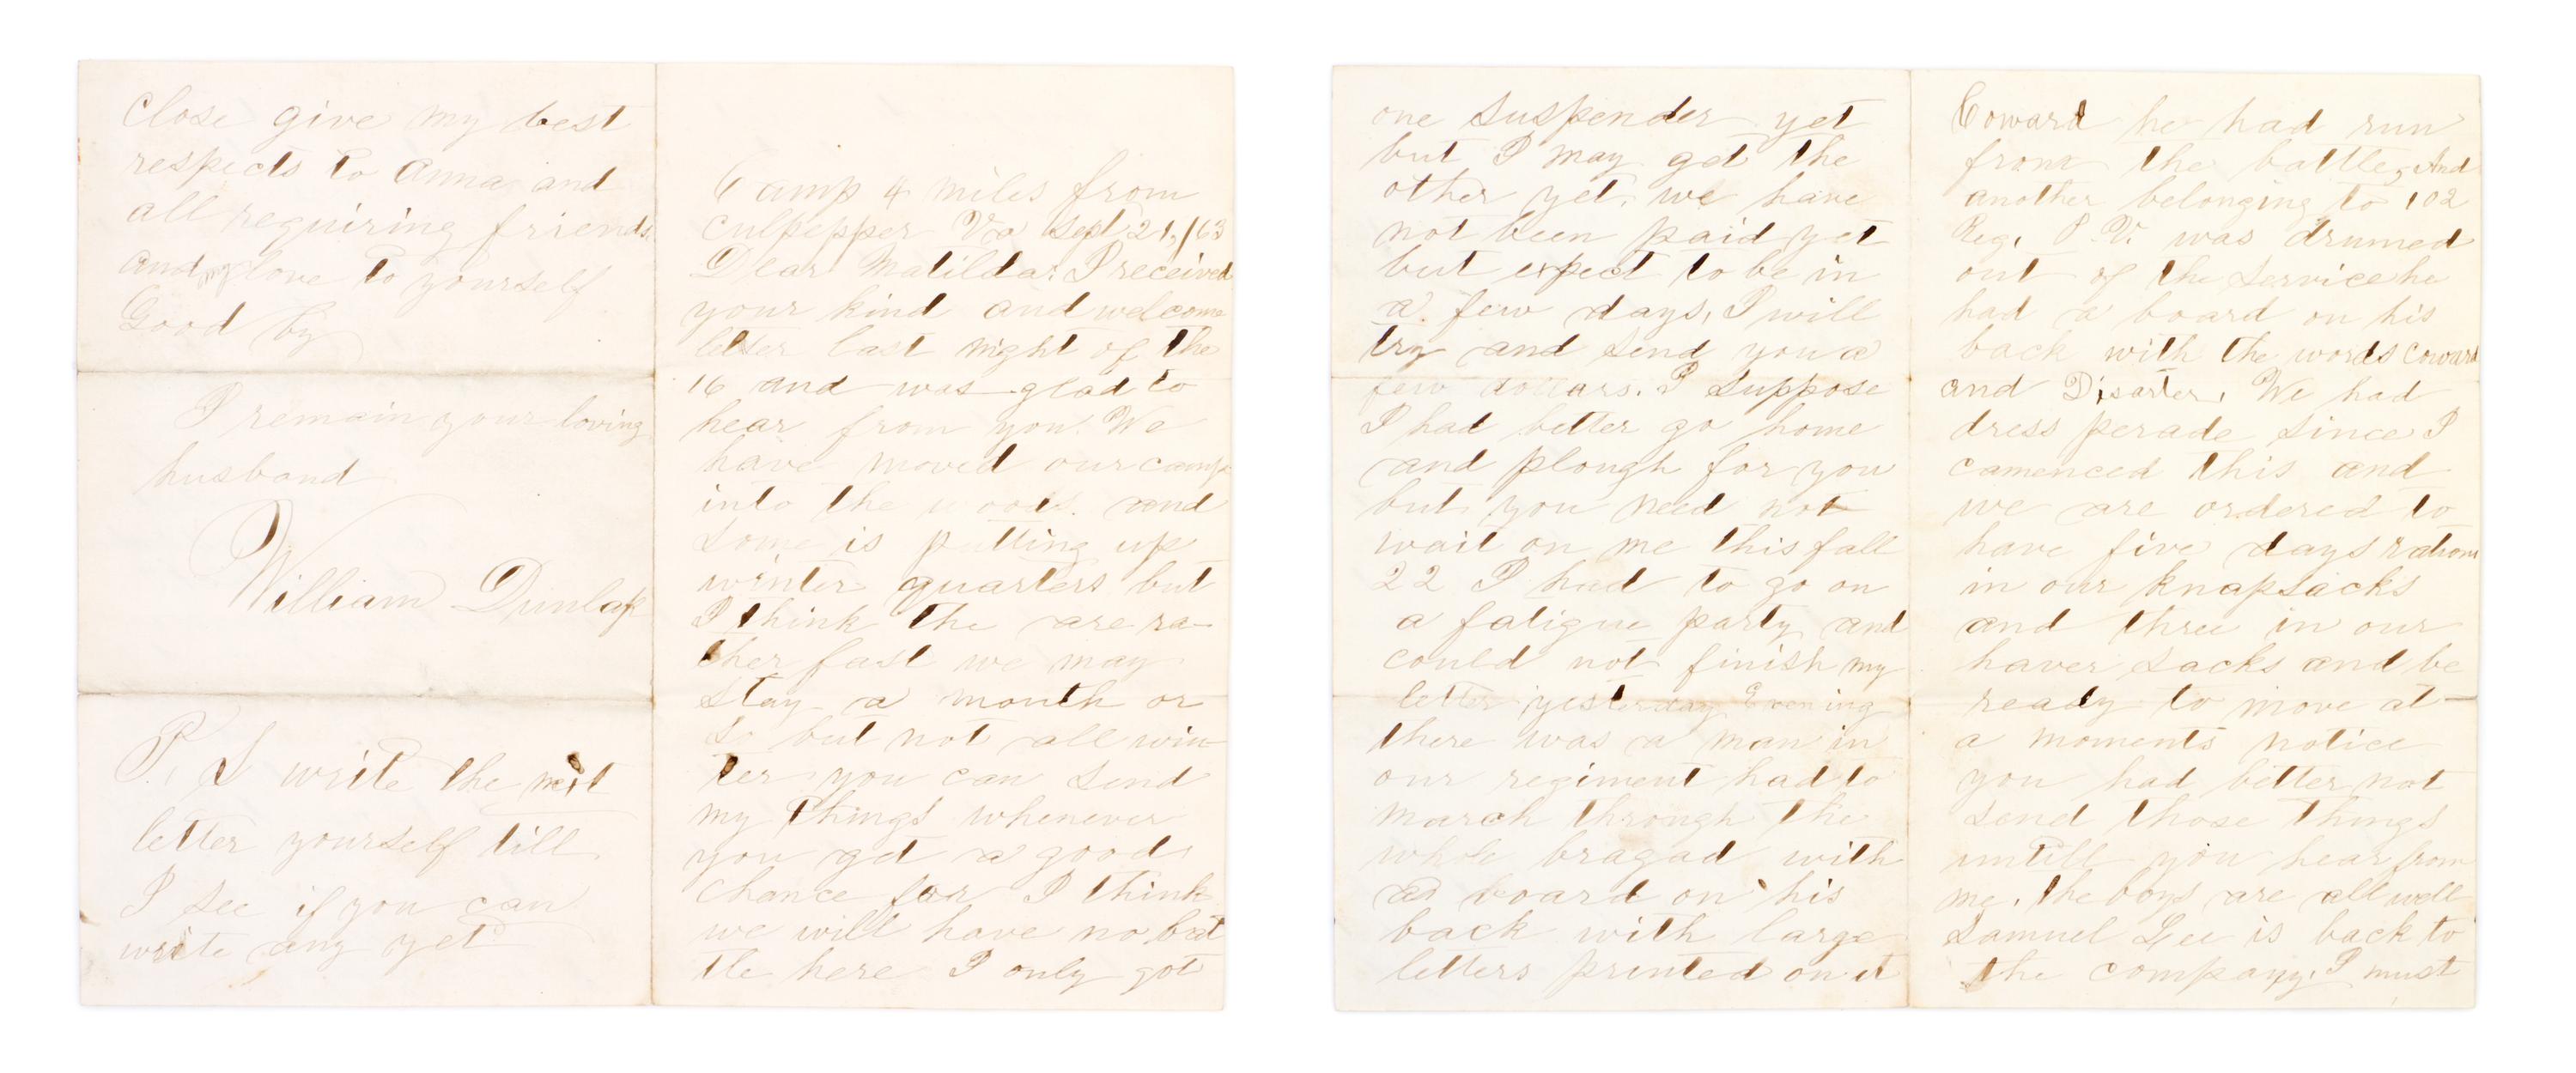 Camp 4 miles from
Culpepper Va Sept 21, /63
Dear Matilda: I received
your kind and welcome
letter last night of the
16 and was glad to
hear from you. We
have moved our camp
into the woods. and
some is putting up
winter quarters but
I think the are ra-
ther fast we may
stay a month or
so but not all win-
ter you can send
my things whenever
you get a good
chance for I think
we will have no bat
tle here I only got
one suspender yet
but I may get the
other yet. we have
not been paid yet
but expect to be in
a few days, I will
try and send you a
few dollars. I suppose
I had better go home
and plough for you
but you need not
wait on me this fall
22 I had to go on
a fatigue party and
could not finish my
letter yesterday Evening
there was a man in
our regiment had to
march through the
whole bragad with
a board on his
back with large
letters printed on it
Coward he had run
from the battle, And
another belonging to 102
Reg. P. V. was drumed
out of the service he
had a board on his
back with the words Coward
and Disarter. We had
dress perade since I
camenced this and
we are ordered to
have five days rations
in our knapsacks
and three in our
haver sacks and be
ready to move at
a moments notice
you had better not
send those things
untill you hear from
me. the boys are all well
Samuel Gee is back to
the company. I must
close give my best
respects to Anna and
all requiring friends
and my love to yourself
Good by
I remain your loving
husband
William Dunlap
P. S write the next
letter yourself till
I see if you can
write any yet